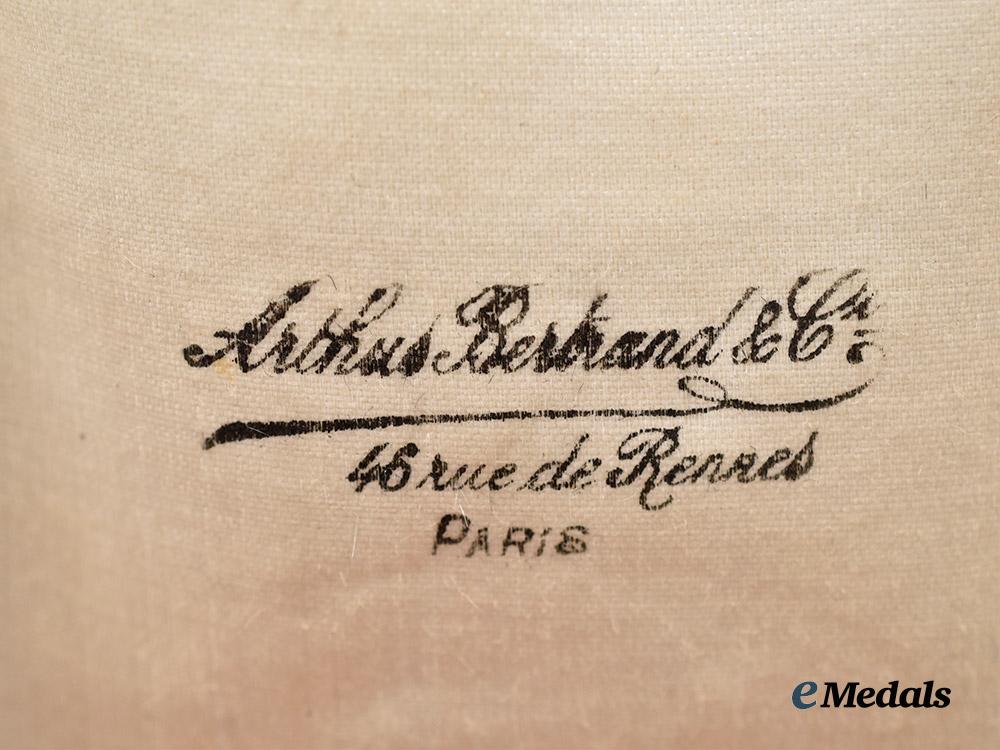 Arthus Bertrand & Cie
46 rue de Rennes
PARIS
eMedals